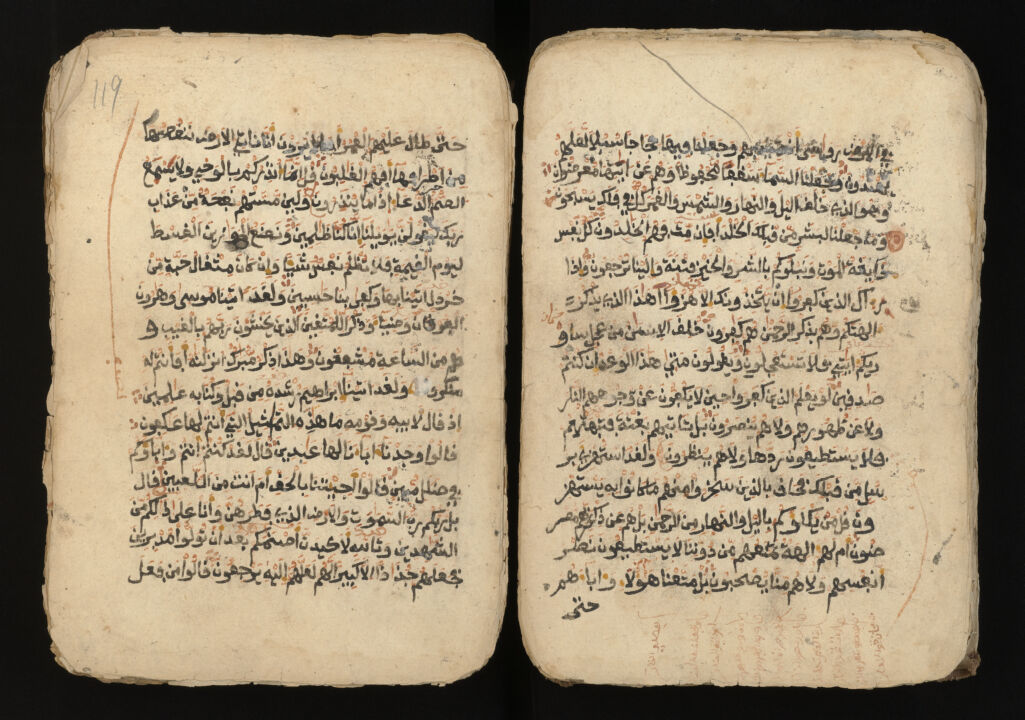 في الارض رواسي ان تميد بهم وجعلنا فيها فجاجا سبلا لعلهم
يهتدون وجعلنا السما سقفا محفوظا وهم عن ايتها معرضون
وهو الذي خلق اليل والنهار والشمس والقمر كل في فلك يسبحون
وما جعلنا لبشر من قبلك الخلد افان مت فهم الخلدون كل نفس
ذايقة الموت ونبلوكم بالشر والخير فتنة والينا ترجعون واذا
راك الذين كفروا ان يتخذونك الا هزوا اهذا الذي يذكر
الهتكم وهم بذكر الرحمن هم كفرون خلق الانسن من عجل ساو
ريكم ايتي فلا تستعجلون ويقولون متى هذا الوعد ان كنتم
صدقين لو يعلم الذين كفروا حين لا يكفون عن وجوههم النار
ولا عن ظهورهم ولا هم ينصرون بل تاتيهم بغتة فتبهتهم
فلا يستطيعون ردها ولا هم ينظرون ولقد استهزي بر
سل من قبلك فحاق بالذين سخروا منهم ما كانوا به يستهز
ون قل من يكلوكم باليل والنهار من الرحمن بل هم عن ذكر ربهم معر
ضون ام لهم الهة تمنعهم من دوننا لا يستطيعون نصر
انفسهم ولا هم منا يصحبون بل متعنا هولا وابا هم
حتى
119
حتى طال عليهم العمر افلا يرون انا ناتي الارض ننقصها
من اطرافها افهم الغلبون قل انما انذركم بالوحي ولا يسمع
الصم الدعا اذا ما ينذرون ولين مستهم نفحة من عذاب
ربك ليقولن يويلنا انا كنا ظلمين ونضع الموازين القسط
ليوم القيمة فلا تظلم نفس شيا وان كان مثقال حبة من
خردل اتينا بها وكفى بنا حسبين ولقد اتينا موسى وهرون
الفرقان وضيا وذكرا للمتقين الذين يخشون ربهم بالغيب و
هم من الساعة مشفقون وهذا ذكر مبرك انزلنه افانتم له
منكرون ولقد اتينا ابراهيم رشده من قبل وكنا به علمين
اذ قال لابيه وقومه ما هذه التماثيل التي انتم لها عكفون
قالوا وجدنا ابانا لها عبدين قال لقد كنتم انتم واباوكم
في ضلل مبين قالوا اجيتنا بالحق ام انت من اللعبين قال
بل ربكم رب السموت والارض الذي فطرهن وانا على ذلكم من
الشهدين وتالله لاكيدن اصنمكم بعد ان تولوا مدبرين
فجعلهم جذاذا الا كبيرا لهم لعلهم اليه يرجعون قالوا من فعل